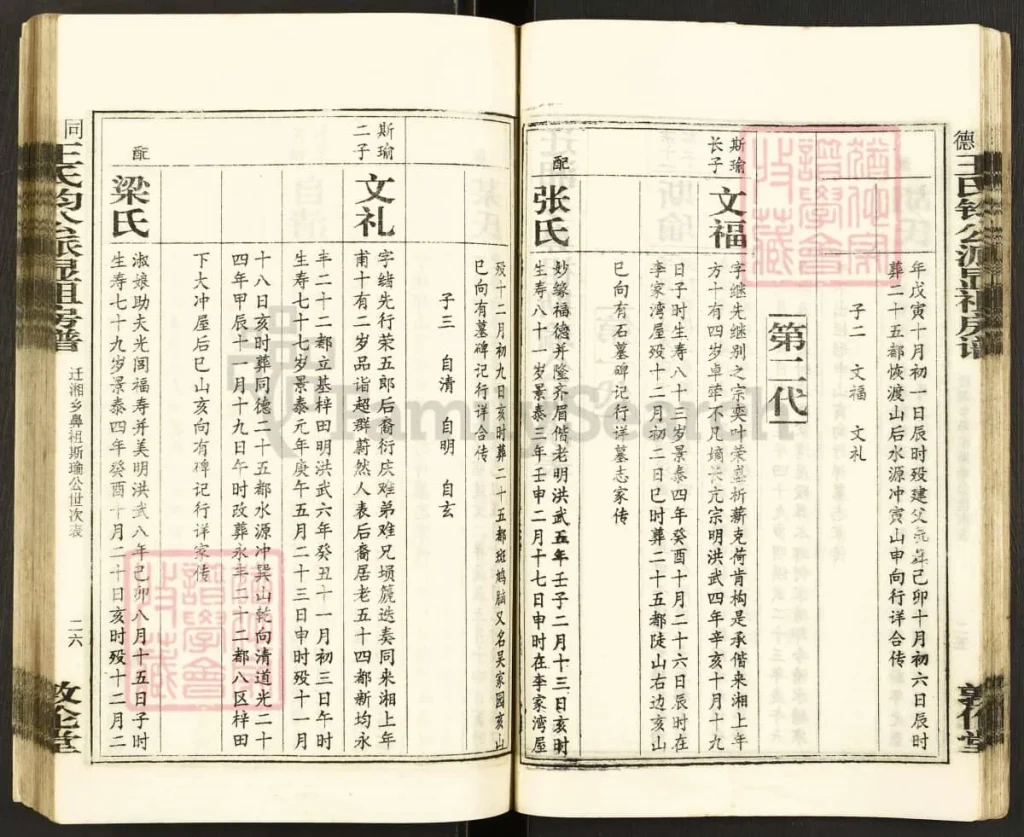 年戊寅十月初一日辰时殁建文元年己卯十月初六日辰时
葬二十五都恢渡山后水源冲寅山申向行详合传
子二 文福 文礼
第二代
斯瑜长子
文福
字继先继别之宗奕叶荣盛析薪克荷肯构是承偕来湘上年
方十有四岁卓荦不凡嫡长亢宗明洪武四年辛亥十月十九
日子时生寿八十三岁景泰四年癸酉十月二十六日辰时在
李家湾屋殁十二月初二日巳时葬二十五都陡山右边亥山
巳向有石墓碑记行详墓志家传
配
张氏
妙缘福德并隆齐眉偕老明洪武五年壬子二月十三日亥时
生寿八十一岁景泰三年壬申二月十七日申时在李家湾屋
殁十二月初九日亥时葬二十五都班鸠脑又名吴家园亥山
巳向有墓碑记行详合传
子三 自清 自明 自玄
斯瑜二子
文礼
字绪先行荣五郎后裔衍庆难弟难兄埙篪迭奏同来湘上年
甫十有二岁品诣超群蔚然人表后裔居老五十四都新均永
丰二十二都立基梓田明洪武六年癸丑十一月初三日午时
生寿七十七岁景泰元年庚午五月二十三日申时殁十一月
十八日亥时葬同德二十五都水源冲巽山乾向清道光二十
四年甲辰十一月十九日午时改葬永丰二十二都八区梓田
下大冲屋后巳山亥向有碑记行详家传
配
梁氏
淑娘助夫光闾福寿并美明洪武八年己卯八月十五日子时
生寿七十九岁景泰四年癸酉十月二十日亥时殁十二月二
迁湘乡鼻祖斯瑜公世次表
二六
敦伦堂
FamilySearch